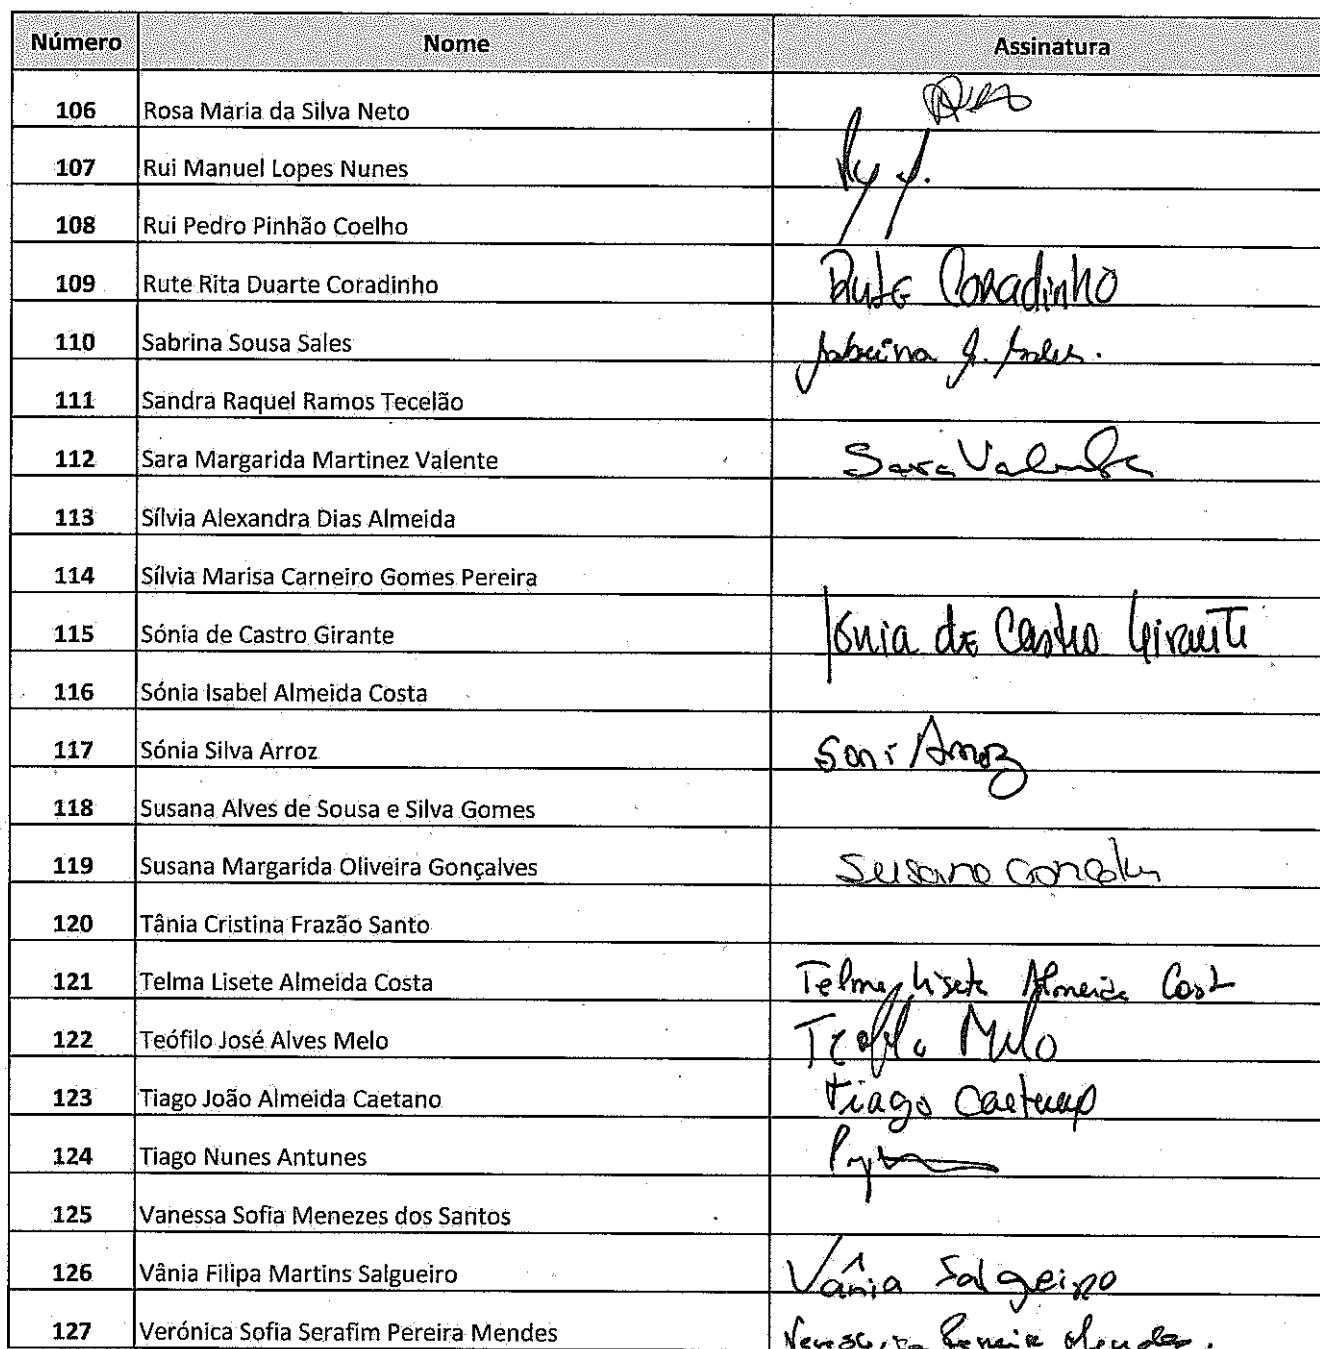 Número Nome Assinatura
106 Rosa Maria da Silva Neto
107 Rui Manuel Lopes Nunes
108 Rui Pedro Pinhão Coelho
109 Rute Rita Duarte Coradinho Rute Coradinho
110 Sabrina Sousa Sales Sabrina S. Sales.
111 Sandra Raquel Ramos Tecelão
112 Sara Margarida Martinez Valente Sara Valente
113 Sílvia Alexandra Dias Almeida
114 Sílvia Marisa Carneiro Gomes Pereira
115 Sónia de Castro Girante Sónia de Castro Girante
116 Sónia Isabel Almeida Costa
117 Sónia Silva Arroz Arroz
118 Susana Alves de Sousa e Silva Gomes
119 Susana Margarida Oliveira Gonçalves Susana
120 Tânia Cristina Frazão Santo
121 Telma Lisete Almeida Costa Telma Lisete Almeida Cost
122 Teófilo José Alves Melo Melo
123 Tiago João Almeida Caetano Tiago Caetano
124 Tiago Nunes Antunes
125 Vanessa Sofia Menezes dos Santos
126 Vânia Filipa Martins Salgueiro Vânia Salgeiro
127 Verónica Sofia Serafim Pereira Mendes Pereira Mendes.